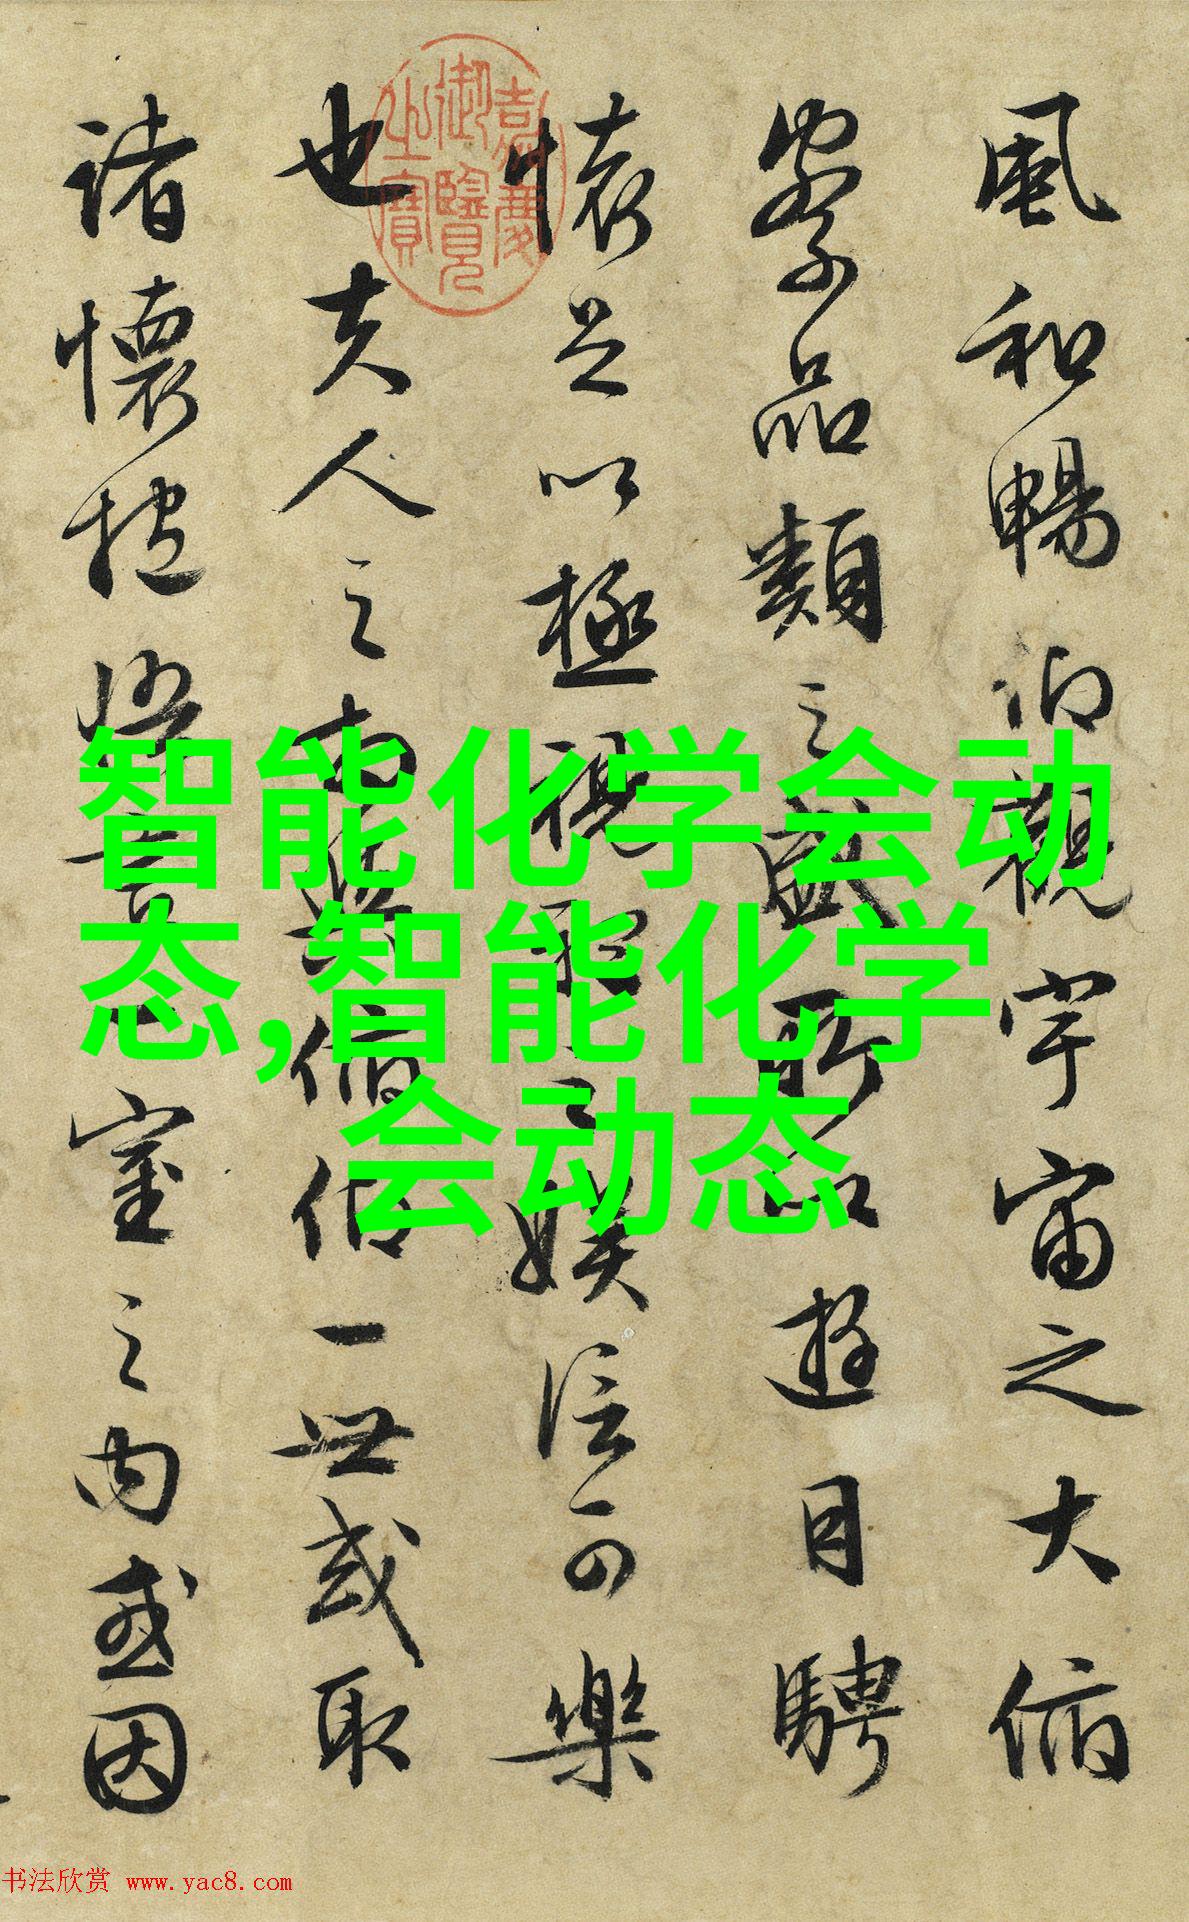 風和暢仰觀宇宙之大俯
察品類之盛所以遊目騁
懷足以極視聽之娛信可樂
也夫人之相與俯仰一世或取
諸懷抱悟言一室之内或因
嘉慶
御覽
之寶
智能化学会动
态,智能化学
会动态
书法欣赏 www.yac8.com